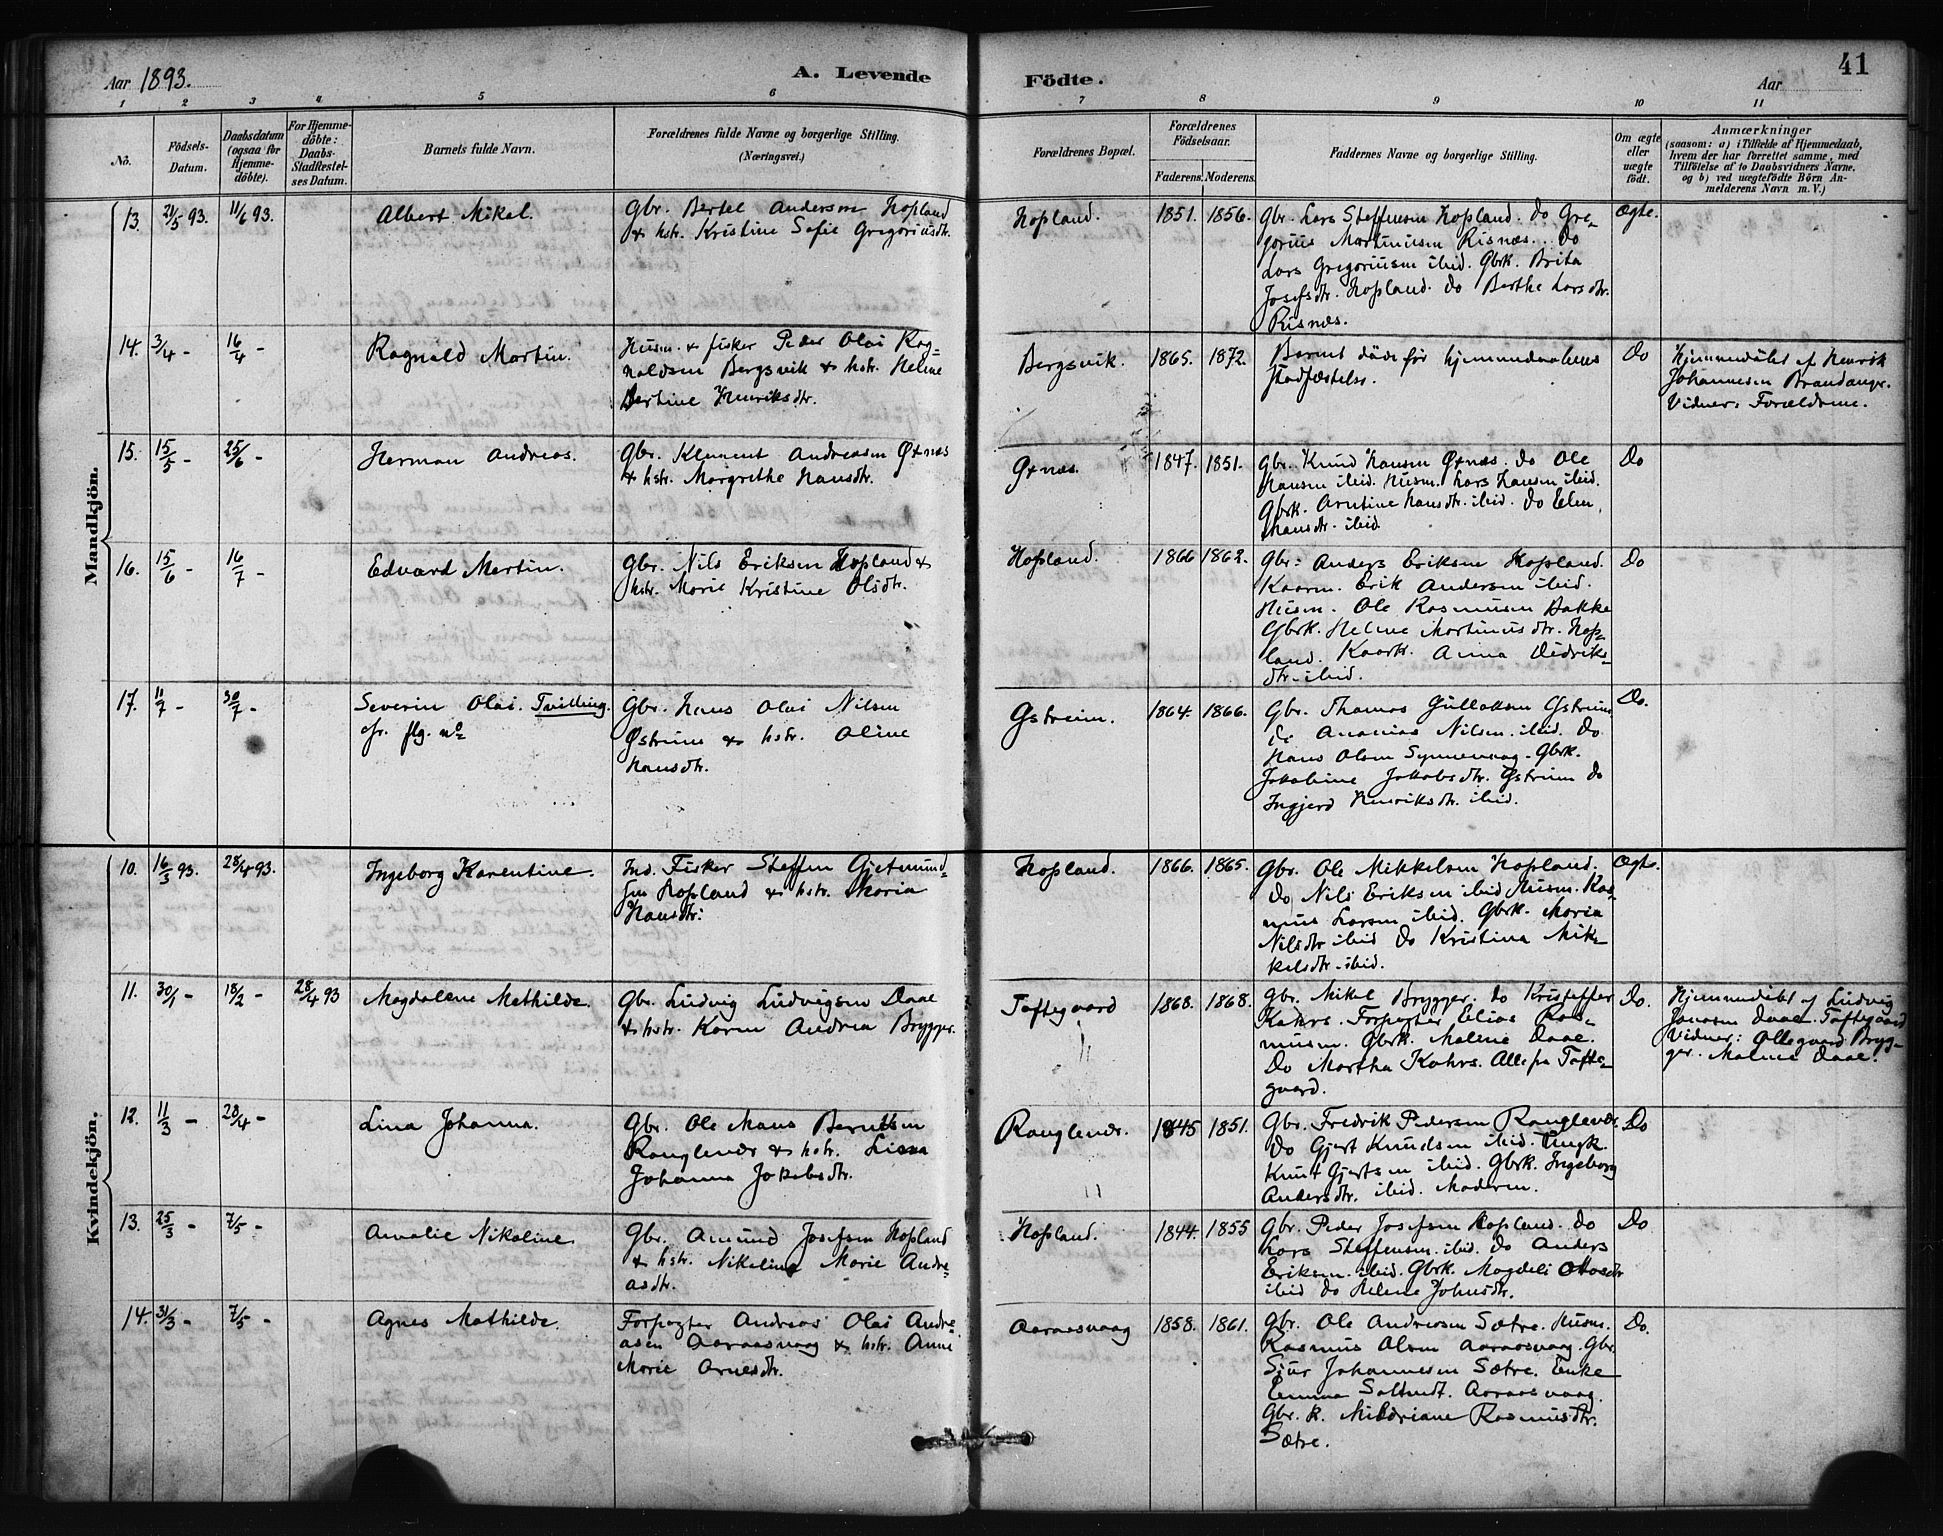 Aar 1893.
A. Levende
Födte.
Aar
41
1 2 3 4 5 6 7 8 9 10 11
No.
Födsels-
Datum.
Daabsdatum
(ogsaa for
Hjemme-
döbte).
For Hjemme-
döbte:
Daabs-
Stadfæstel-
ses Datum.
Barnets fulde Navn.
Forældrenes fulde Navne og borgerlige Stilling.
(Næringsvei.)
Forældrenes Bopæl.
Forældrenes
Födselsaar.
Faderens. Moderens.
Faddernes Navne og borgerlige Stilling.
Om ægte
eller
uægte
födt.
Anmærkninger
(saasom: a) i Tilfælde af Hjemmedaab,
hvem der har forrettet samme, med
Tilföielse af to Daabsvidners Navne,
og b) ved uægtefödte Börn An-
melderens Navn m. V.)
Mandkjön.
13. 21/5 93. 11/6 93.
Albert Mikal.
Gbr. Bertel Andersen Hopland
& hstr. Kristine Sofie Gregoriusdtr.
Hopland.
1851. 1856.
Gbr. Lars Steffensen Hopland. do Gre-
gorius Martinusen Risnæs. Do
Lars Gregoriusen ibid. Gbrk. Brita
Josefsdtr. Hopland. do Berthe Larsdtr.
Risnæs.
Ægte.
14. 3/4 - 16/4 -
Ragnald Martin.
Husm. & fisker Peder Olai Rag-
naldsen Bergsvik & hstr. Helene
Bertine Henriksdtr.
Bergsvik.
1865. 1872.
Barnet döde før hjemmedaabens
stadfæstelse.
Do
Hjemmedöbt af Henrik
Johannesen Brandanger.
Vidner: Forældrene.
15. 15/5 - 25/6 -
Herman Andreas.
Gbr. Klement Andreasen Øxnæs
& hstr. Margrethe Hansdtr.
Øxnæs.
1847. 1851.
Gbr. Knud Hansen Øxnæs. do Ole
Hansen ibid. Husm. Lars Hansen ibid.
Gbrk. Arntine Hansdtr. ibid. Do Elen
Hansdtr. ibid.
Do
16. 15/6 - 16/7 -
Edvard Martin.
Gbr. Nils Eriksen Hopland &
hstr. Marie Kristine Olsdtr.
Hopland.
1866 1862.
Gbr: Anders Eriksen Hopland.
Kaarm. Erik Andersen ibid.
Husm. Ole Rasmusen Bakke
Gbrk. Helene Martinusdtr. Hop-
land. Kaark. Anna Didriks-
dtr. ibid.
Do
17. 11/7 - 30/7 -
Severin Olai. Tvilling.
cfr. flg. no
Gbr. Hans Olai Nilsen
Østreim & hstr. Oline
Hansdtr.
Østreim.
1864. 1866.
Gbr. Thomas Gullaksen Østreim
do Ananias Nilsen. ibid. Do
Hans Olsen Synnevaag. Gbrk.
Jakobine Jakobsdtr. Østreim Do
Ingjerd Henriksdtr. ibid.
Do.
Kvindekjön.
10. 16/3 93. 23/4 93.
Ingeborg Karentine.
Ind. Fisker Steffen Gjetmund-
sen Hopland & hstr. Maria
Hansdtr.
Hopland.
1866. 1865.
Gbr. Ole Mikkelsen Hopland.
Do Nils Eriksen ibid Husm. Ras-
mus Larsen ibid. Gbrk. Maria
Nilsdtr ibid Do Kristina Mik-
kelsdtr. ibid.
Ægte.
11. 30/1 - 18/2 - 23/4 93
Magdalene Mathilde.
Gbr. Ludvig Ludvigsen Daae
& hstr. Karen Andrea Brygger.
Toftegaard
1868. 1868.
Gbr. Mikal Brygger. do Kristoffer
Kahrs. Forpagter Elias Ras-
musen. Gbrk. Malene Daae.
Do Martha Kahrs. Alle fra Tofte-
gaard.
Do.
Hjemmedöbt af Ludvig
Jonasen Daae. Toftegaard
Vidner: Ollegaard Bryg-
ger. Malene Daae.
12. 11/3 - 23/4 -
Lina Johanna.
Gbr. Ole Mons Berntsen
Ranglender & hstr. Lisna
Johanna Jakobsdtr.
Ranglendr.
1845 1851.
Gbr. Fredrik Pedersen Ranglendr.
Do Gjert Knudsen ibid. Ungk.
Knut Gjertsen ibid. Gbrk. Ingeborg
Andersdtr. ibid. Moderen.
Do
13. 25/3 - 7/5 -
Amalie Nikoline
Gbr. Amund Josefsen Hopland
& hstr. Nikoline Marie Andre-
asdtr.
Hopland.
1844. 1855
Gbr. Peder Josefsen Hopland. do
Lars Steffensen. ibid. do Anders
Eriksen. ibid. Gbrk. Magdeli Ottosdtr
ibid do Helene Johnsdtr.
Do
14. 31/3 - 7/5 -
Agnes Mathilde.
Forpagter Andreas Olai Andre-
asen Aaraasvaag & hstr. Anne
Marie Arnesdtr.
Aaraasvaag
1858. 1861.
Gbr. Ole Andreasen Sætre. Husm.
Rasmus Olsen Aaraasvaag. Gbr.
Sjur Johannesen Sætre. Enke
Emma Aaraasvaag.
Gbr. k. Rasmusdtr.
Sætre.
Do.